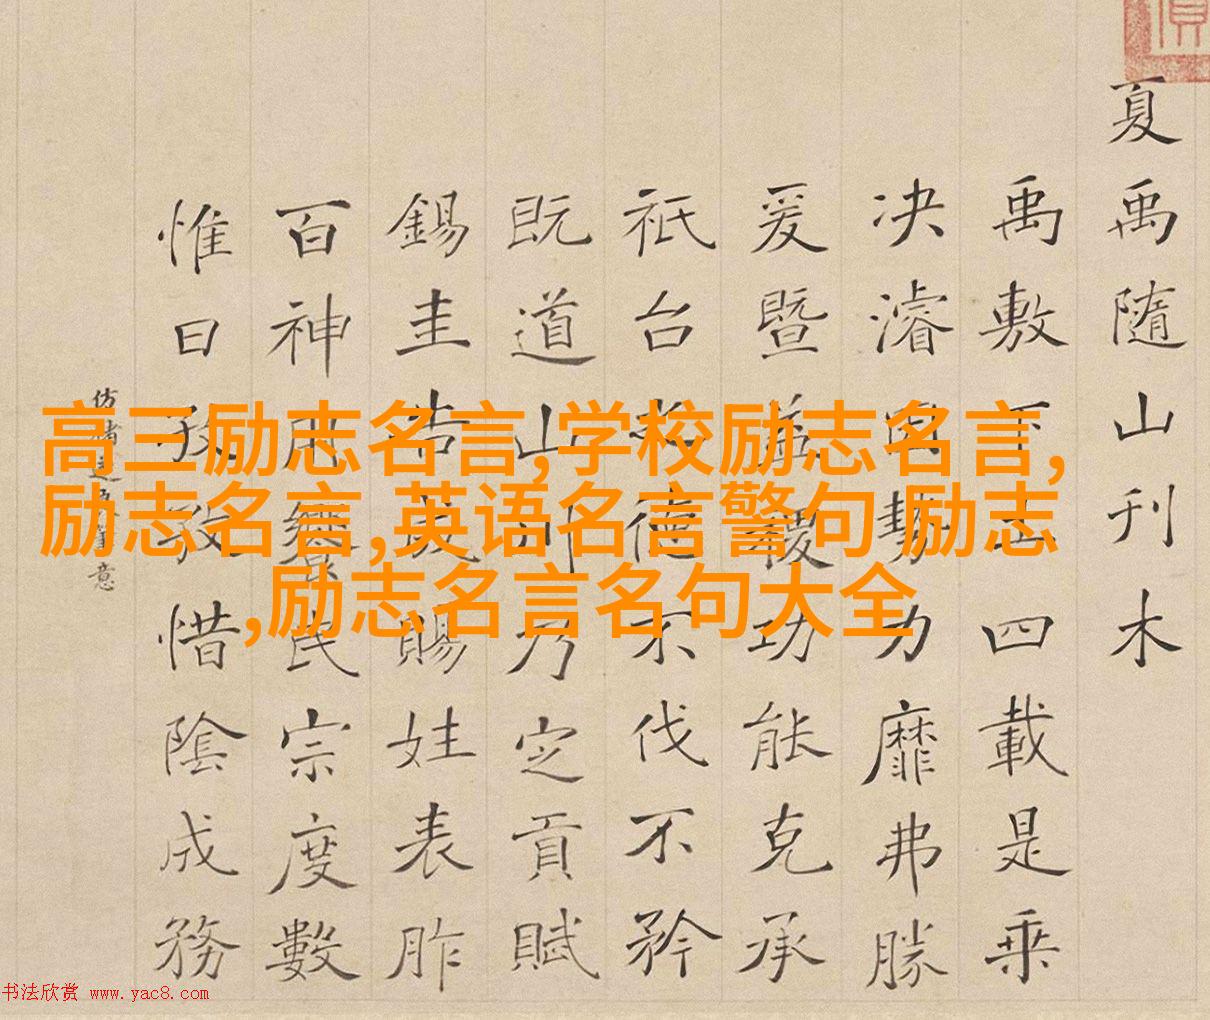 高三励志名言,学校励志名言,
励志名言,英语名言警句 励志
,励志名言名句大全
夏禹隨山刊木
禹敷下土四載是乘
决濬因勢力靡弗勝
爰暨益稷功能克承
祇台德不伐不矜
既道山川乃定貢賦
錫圭告成賜姓表胙
百神饗民宗度數
惟日孜孜惜陰成務
仿褚遂良筆意
书法欣赏 www.yac8.com